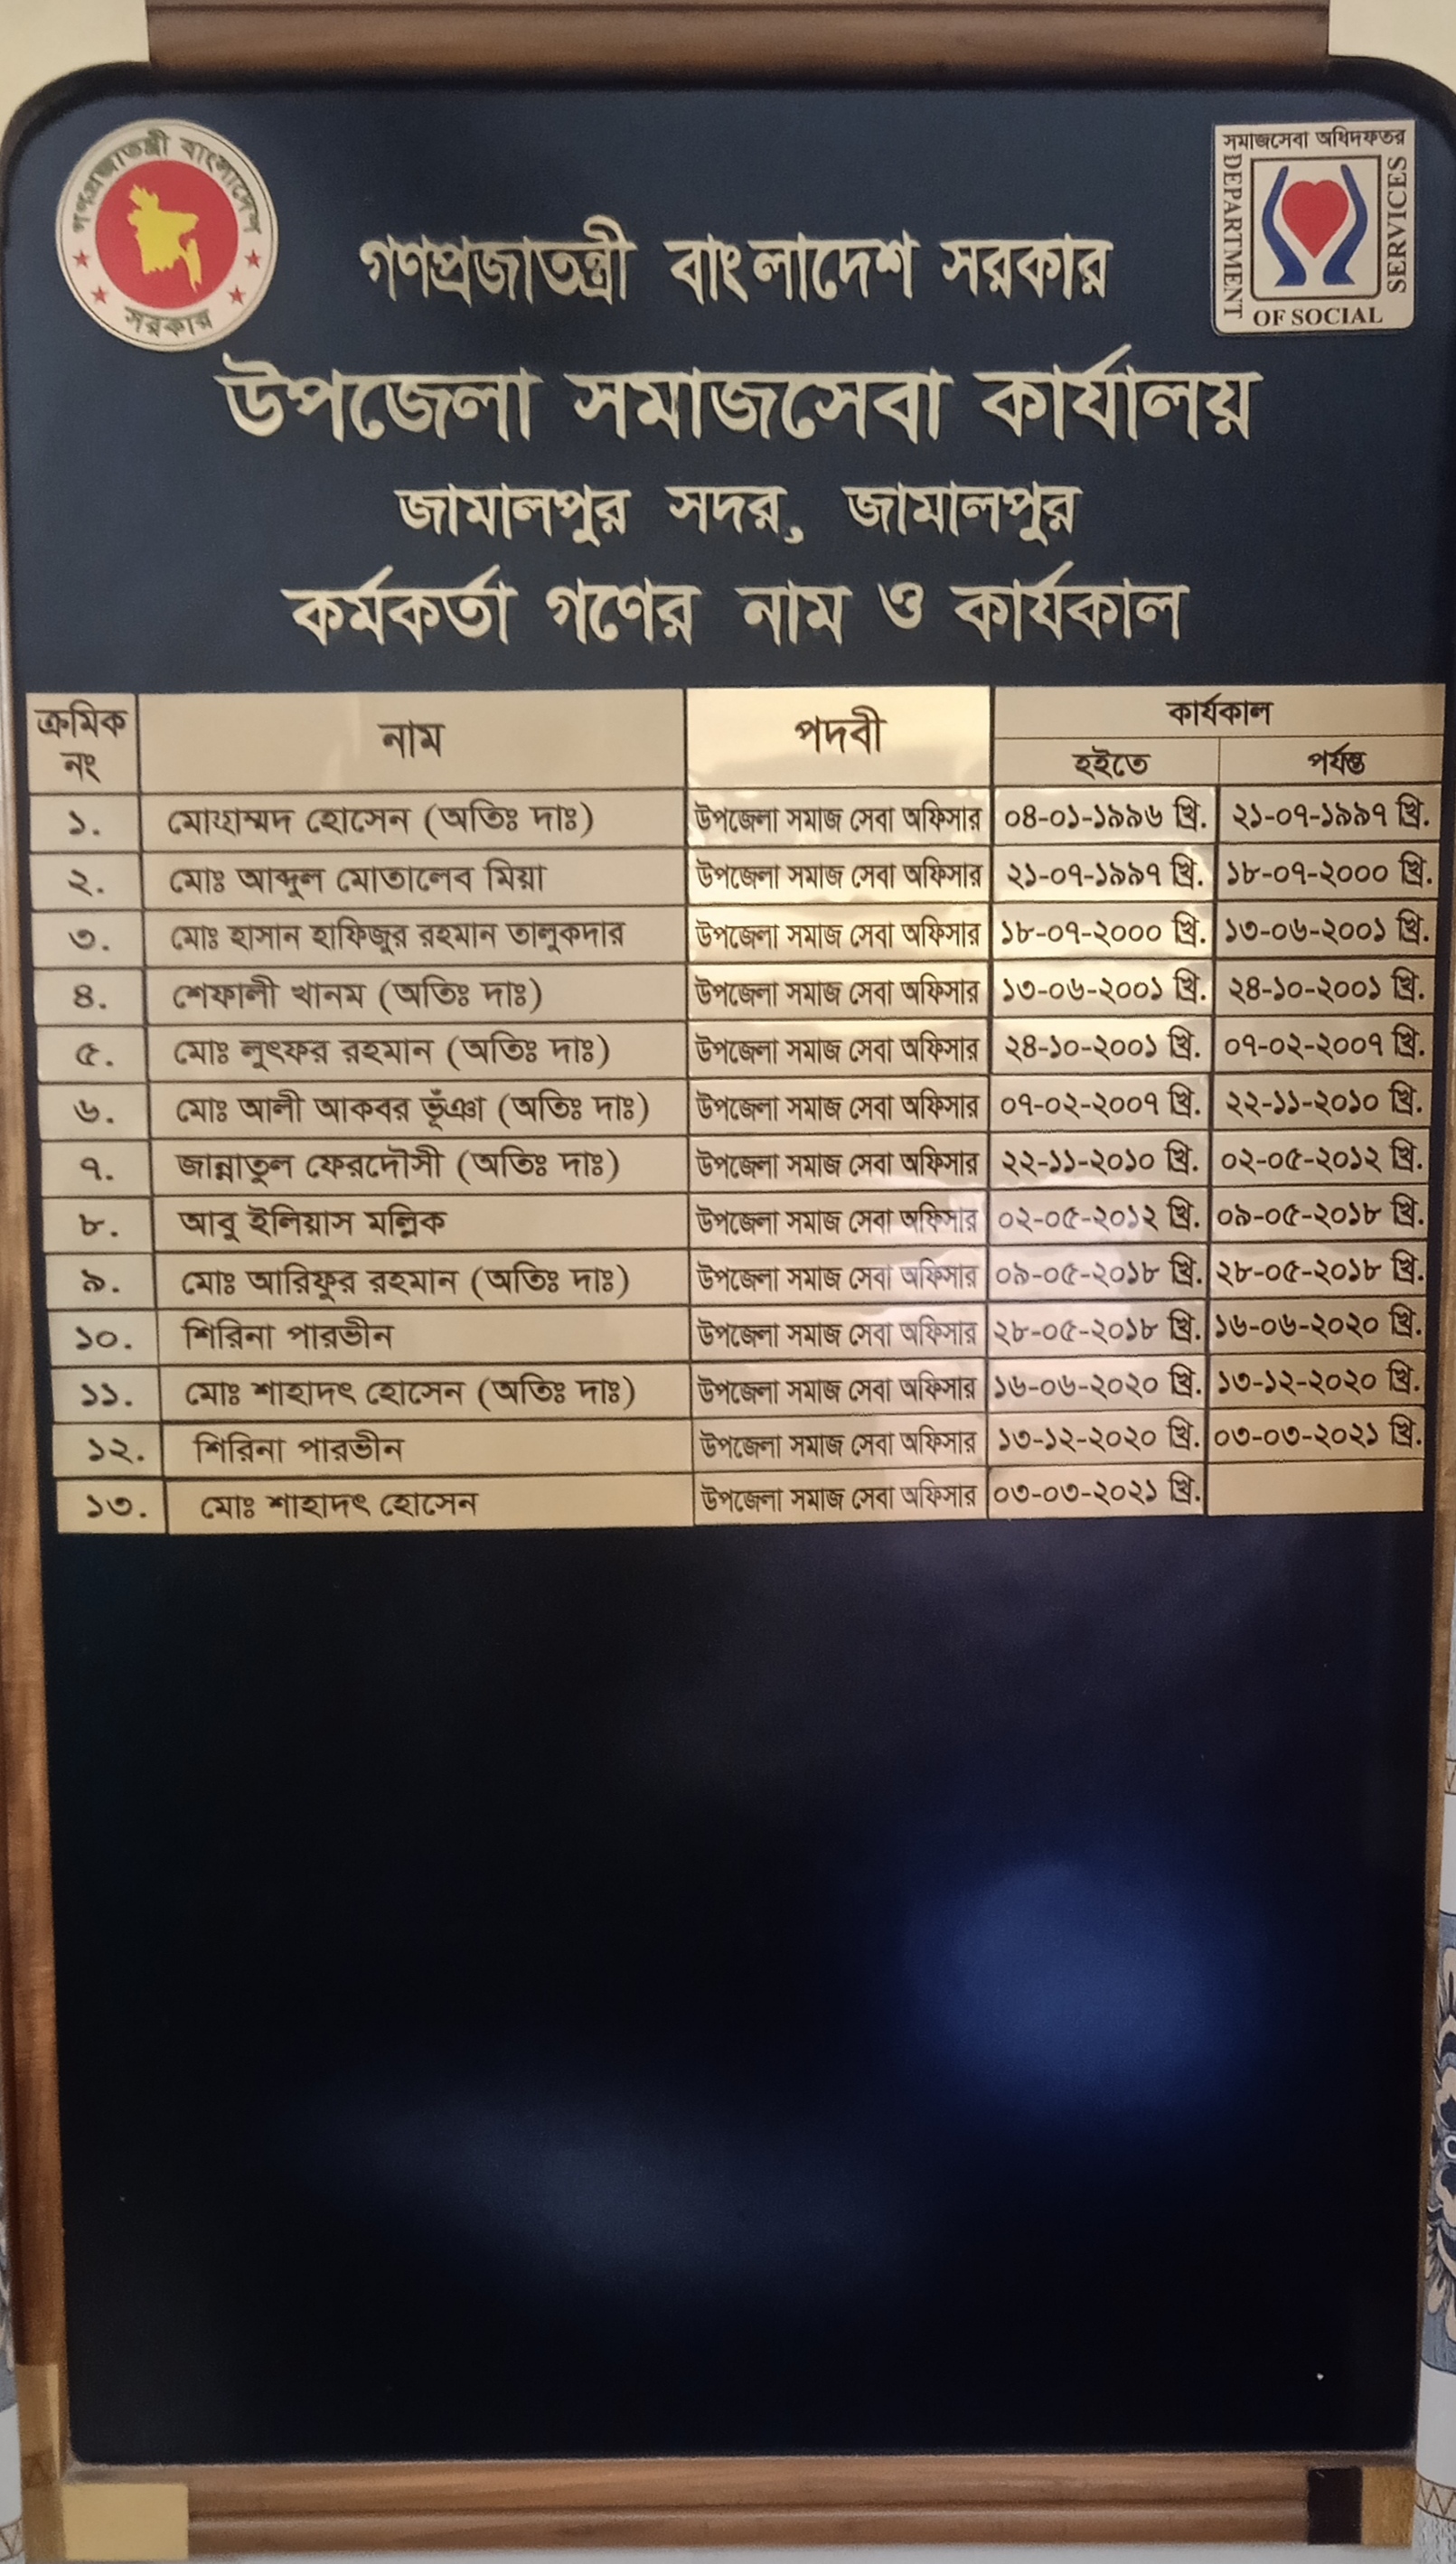 গণপ্রজাতন্ত্রী বাংলাদেশ
সরকার
সমাজসেবা অধিদফতর
DEPARTMENT
OF SOCIAL
SERVICES
গণপ্রজাতন্ত্রী বাংলাদেশ সরকার
উপজেলা সমাজসেবা কার্যালয়
জামালপুর সদর, জামালপুর
কর্মকর্তা গণের নাম ও কার্যকাল
ক্রমিক নং নাম পদবী কার্যকাল
হইতে পর্যন্ত
১. মোহাম্মদ হোসেন (অতিঃ দাঃ) উপজেলা সমাজ সেবা অফিসার ০৪-০১-১৯৯৬ খ্রি. ২১-০৭-১৯৯৭ খ্রি.
২. মোঃ আব্দুল মোতালেব মিয়া উপজেলা সমাজ সেবা অফিসার ২১-০৭-১৯৯৭ খ্রি. ১৮-০৭-২০০০ খ্রি.
৩. মোঃ হাসান হাফিজুর রহমান তালুকদার উপজেলা সমাজ সেবা অফিসার ১৮-০৭-২০০০ খ্রি. ১৩-০৬-২০০১ খ্রি.
৪. শেফালী খানম (অতিঃ দাঃ) উপজেলা সমাজ সেবা অফিসার ১৩-০৬-২০০১ খ্রি. ২৪-১০-২০০১ খ্রি.
৫. মোঃ লুৎফর রহমান (অতিঃ দাঃ) উপজেলা সমাজ সেবা অফিসার ২৪-১০-২০০১ খ্রি. ০৭-০২-২০০৭ খ্রি.
৬. মোঃ আলী আকবর ভূঁঞা (অতিঃ দাঃ) উপজেলা সমাজ সেবা অফিসার ০৭-০২-২০০৭ খ্রি. ২২-১১-২০১০ খ্রি.
৭. জান্নাতুল ফেরদৌসী (অতিঃ দাঃ) উপজেলা সমাজ সেবা অফিসার ২২-১১-২০১০ খ্রি. ০২-০৫-২০১২ খ্রি.
৮. আবু ইলিয়াস মল্লিক উপজেলা সমাজ সেবা অফিসার ০২-০৫-২০১২ খ্রি. ০৯-০৫-২০১৮ খ্রি.
৯. মোঃ আরিফুর রহমান (অতিঃ দাঃ) উপজেলা সমাজ সেবা অফিসার ০৯-০৫-২০১৮ খ্রি. ২৮-০৫-২০১৮ খ্রি.
১০. শিরিনা পারভীন উপজেলা সমাজ সেবা অফিসার ২৮-০৫-২০১৮ খ্রি. ১৬-০৬-২০২০ খ্রি.
১১. মোঃ শাহাদৎ হোসেন (অতিঃ দাঃ) উপজেলা সমাজ সেবা অফিসার ১৬-০৬-২০২০ খ্রি. ১৩-১২-২০২০ খ্রি.
১২. শিরিনা পারভীন উপজেলা সমাজ সেবা অফিসার ১৩-১২-২০২০ খ্রি. ০৩-০৩-২০২১ খ্রি.
১৩. মোঃ শাহাদৎ হোসেন উপজেলা সমাজ সেবা অফিসার ০৩-০৩-২০২১ খ্রি.